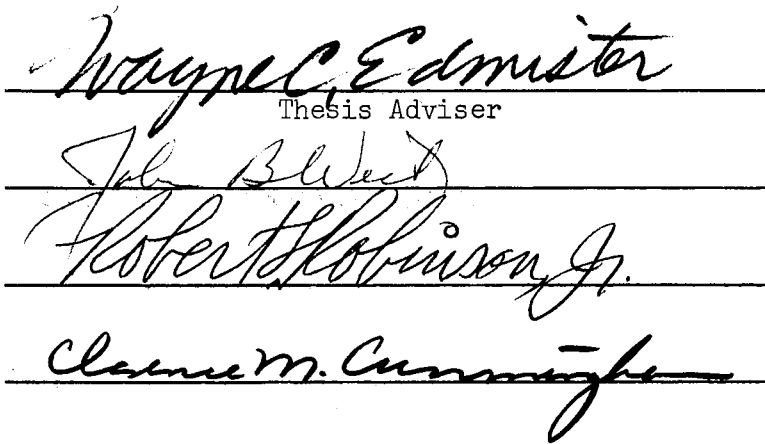 Wayne C. Edmister
Thesis Adviser
John B West
Robert L Robinson, Jr.
Clarence M. Cunningham